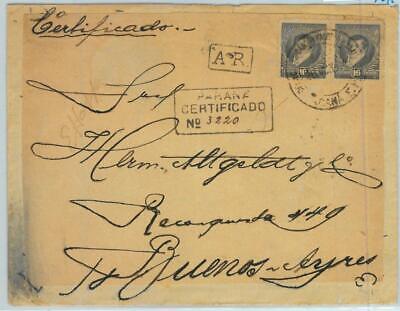 Certificado.-
A.R.
16
16
PARANÁ
CERTIFICADO
Nº 3220
Herm. Altgelt y Co
Reconquista 449
Buenos-Ayres